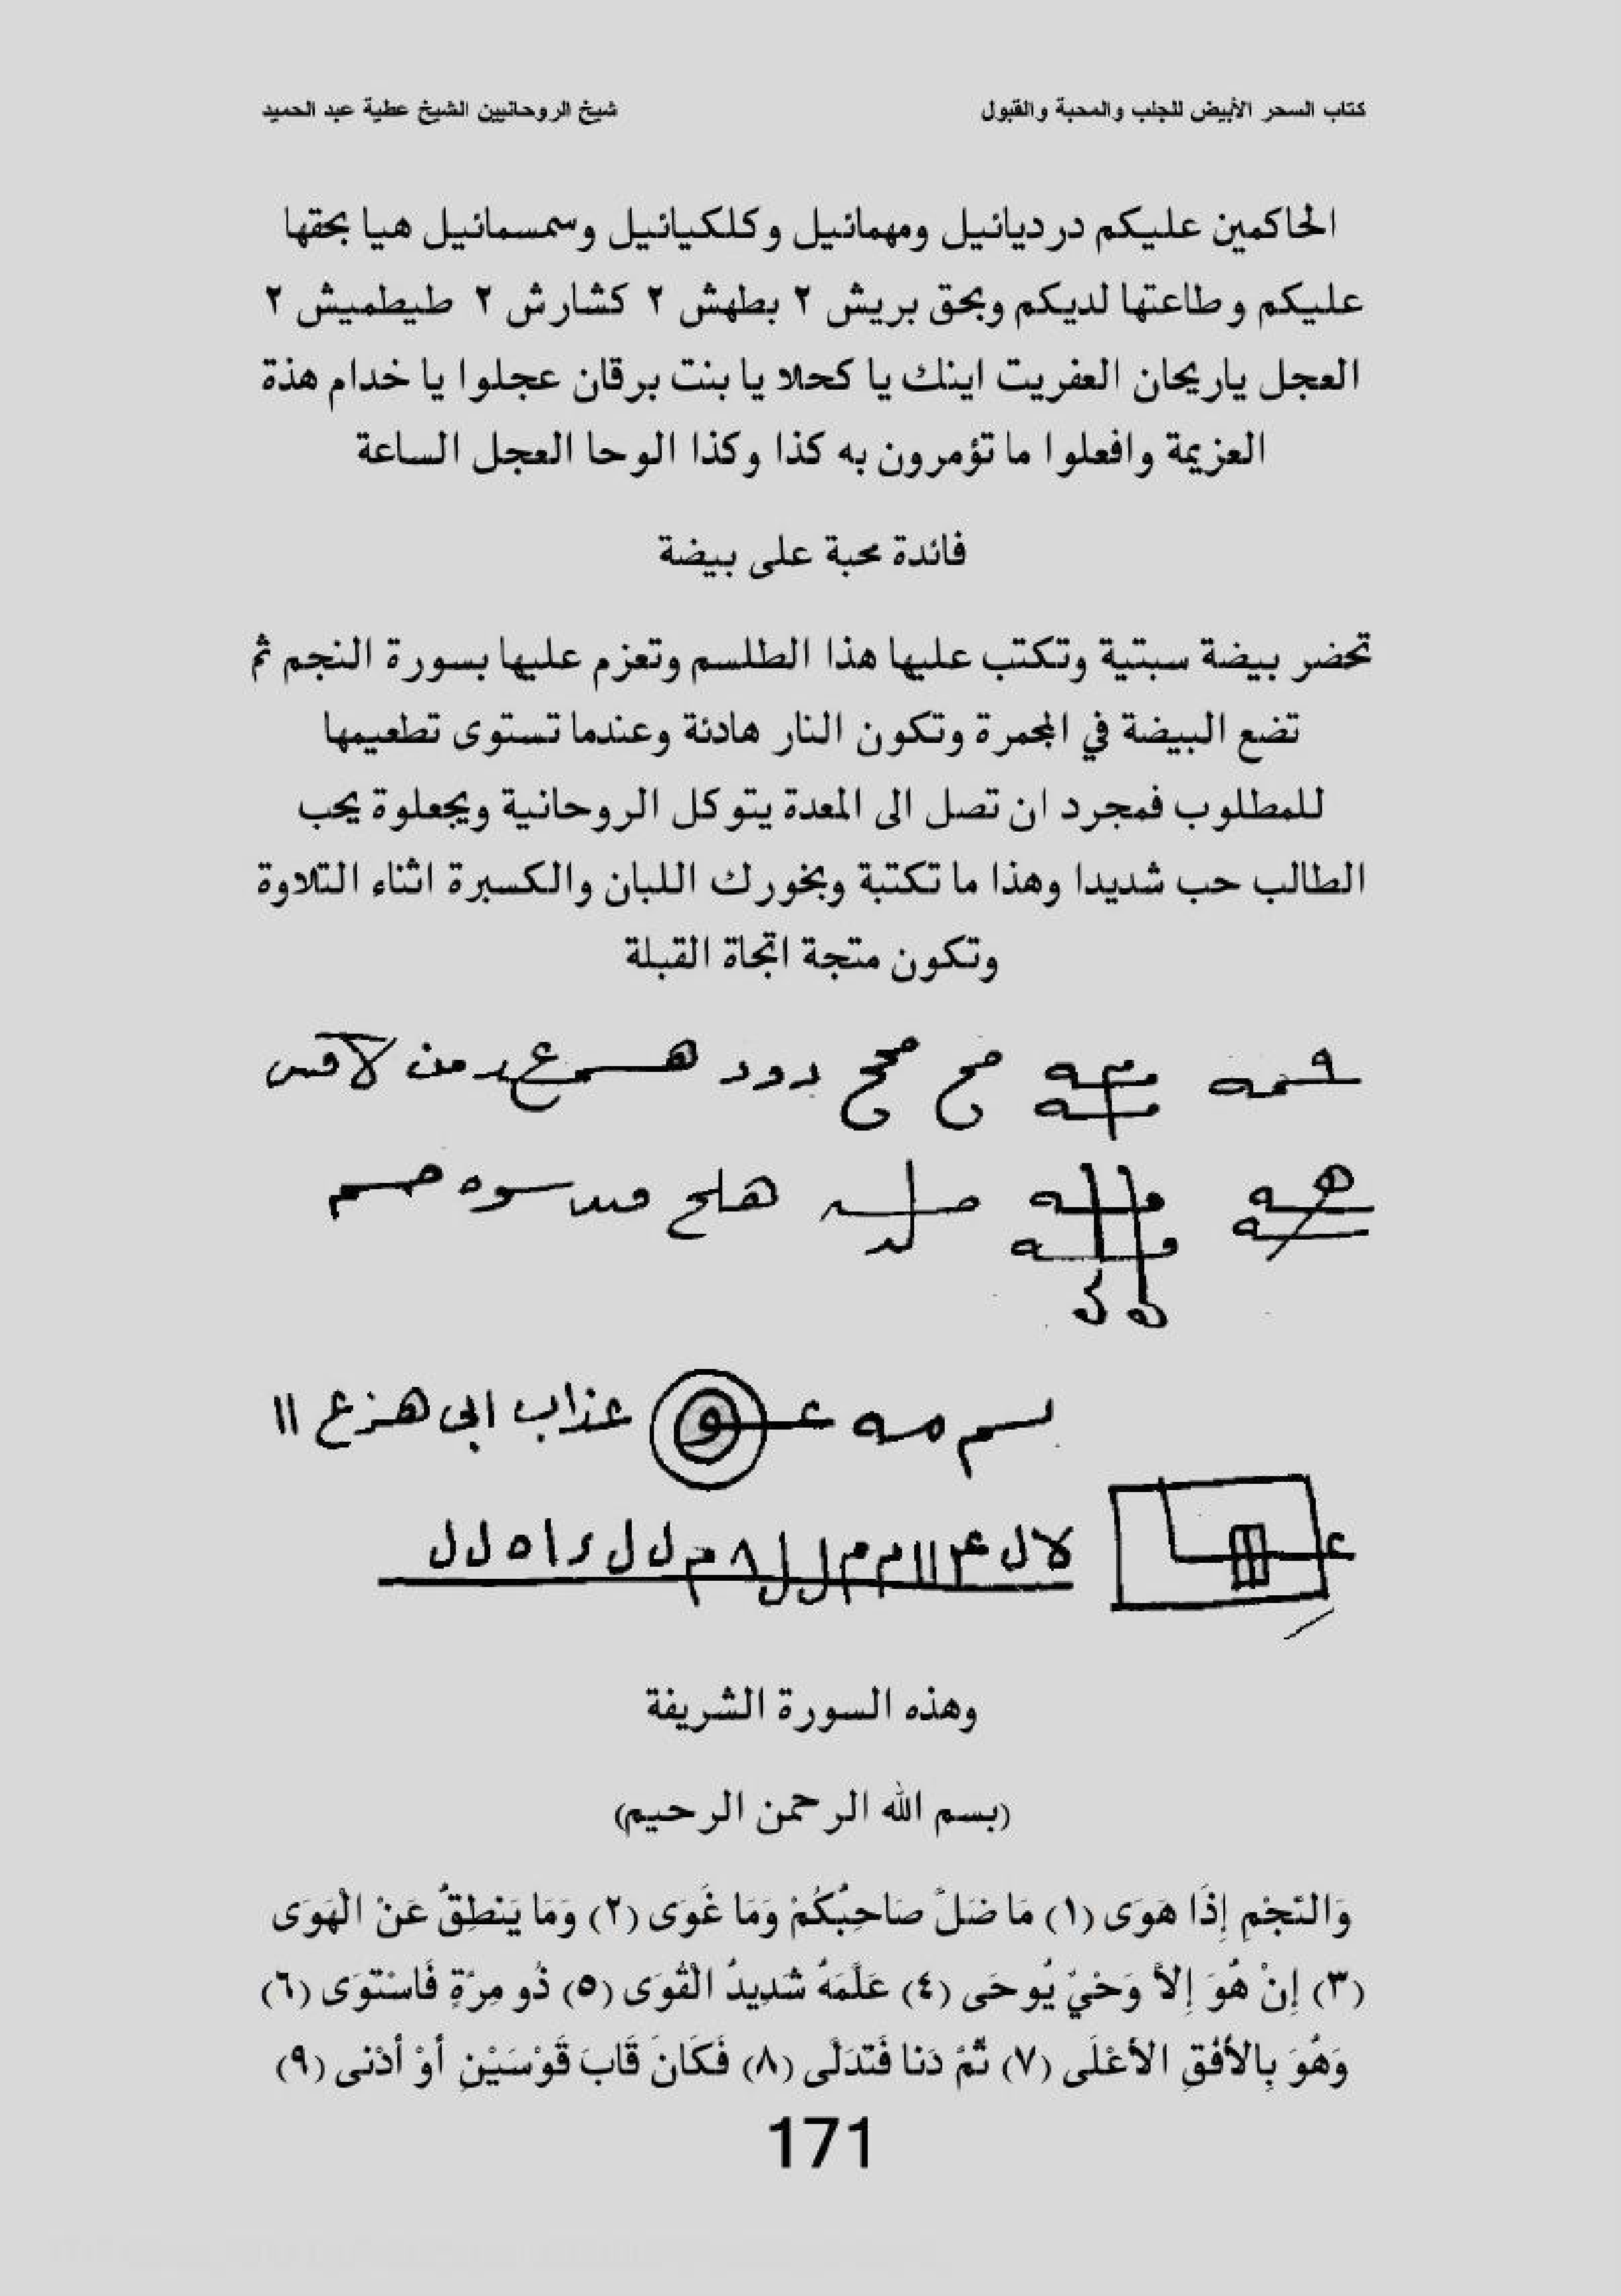 كتاب السحر الأبيض للجلب والمحبة والقبول شيخ الروحانيين الشيخ عطية عبد الحميد
الحاكمين عليكم دردیائیل ومهمائیل وكلكیائیل وسمسمائیل هیا بحقها
عليكم وطاعتها لديكم وبحق بريش ٢ بطهش ٢ كشارش ٢ طيطميش ٢
العجل ياريحان العفريت اينك يا كحلا يا بنت برقان عجلوا يا خدام هذة
العزيمة وافعلوا ما تؤمرون به كذا وكذا الوحا العجل الساعة
فائدة محبة على بيضة
تحضر بيضة سبتية وتكتب عليها هذا الطلسم وتعزم عليها بسورة النجم ثم
تضع البيضة في المجمرة وتكون النار هادئة وعندما تستوى تطعيمها
للمطلوب فمجرد ان تصل الى المعدة يتوكل الروحانية ويجعلوة يحب
الطالب حب شديدا وهذا ما تكتبة وبخورك اللبان والكسبرة اثناء التلاوة
وتكون متجة اتجاة القبلة
عذاب ابى هزع ١١
وهذه السورة الشريفة
(بسم الله الرحمن الرحيم)
وَالنَّجْمِ إِذَا هَوَى (١) مَا ضَلَّ صَاحِبُكُمْ وَمَا غَوَى (٢) وَمَا يَنطِقُ عَنْ الْهَوَى
(٣) إِنْ هُوَ إِلاَّ وَحْيٌ يُوحَى (٤) عَلَّمَهُ شَدِيدُ الْقُوَى (٥) ذُو مِرَّةٍ فَاسْتَوَى (٦)
وَهُوَ بِالأُفُقِ الأَعْلَى (٧) ثُمَّ دَنا فَتَدَلَّى (٨) فَكَانَ قَابَ قَوْسَيْنِ أَوْ أَدْنى (٩)
171